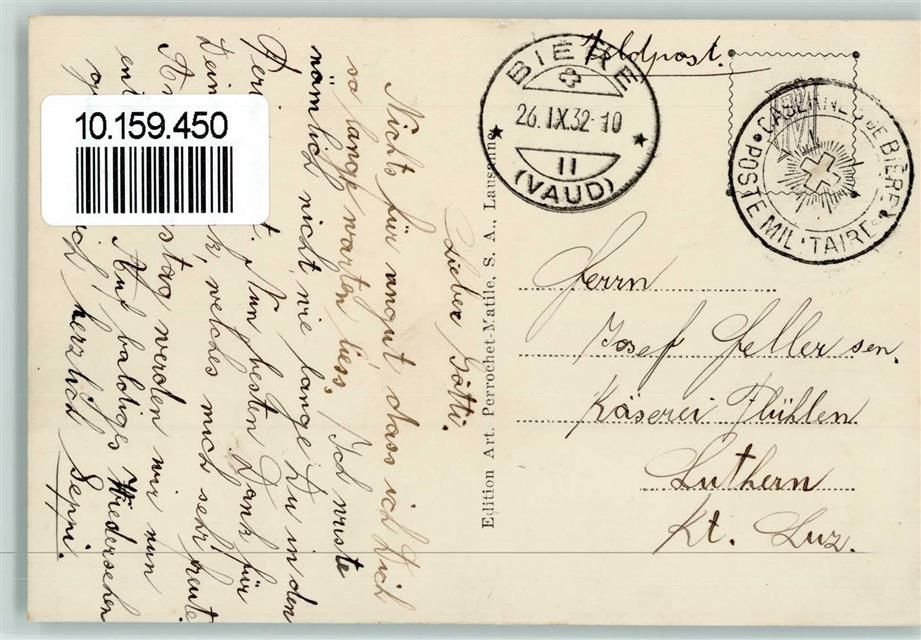 Feldpost.
BIÈRE
26.IX.32-10
II
(VAUD)
CASERNES DE BIÈRE
POSTE MILITAIRE
10.159.450
Herrn
Josef Feller sen.
Käserei Flühlen
Luthern
Kt. Luz.
Edition Art. Perrochet-Matile, S. A., Lausanne
Lieber Götti.
Nichts für ungut dass ich Dich
so lange warten liess. Ich wusste
nämlich nicht wie lange Du in den
Nun besten Dank für
Dein welches mich sehr freute
werden wir nun
Auf baldiges Wiedersehen
herzlich Seppi.